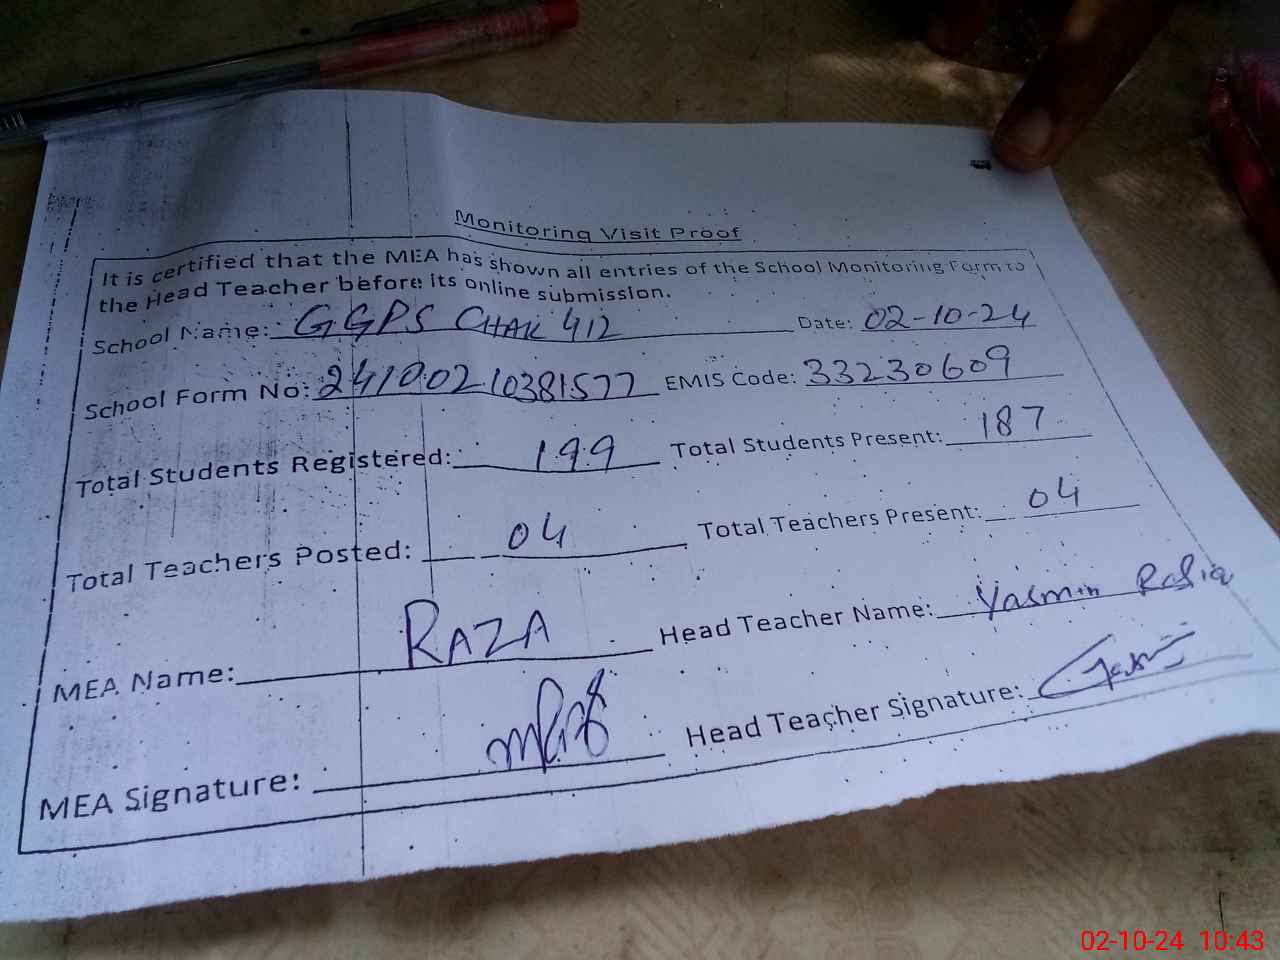 Monitoring Visit Proof
It is certified that the MEA has shown all entries of the School Monitoring Form to
the Head Teacher before its online submission.
School Name: GGPS CHAK 412 Date: 02-10-24
School Form No: 24100210381577 EMIS Code: 33230609
Total Students Registered: 199 Total Students Present: 187
Total Teachers Posted: 04 Total Teachers Present: 04
MEA Name: RAZA Head Teacher Name: Yasmin Rafia
MEA Signature: Head Teacher Signature:
02-10-24 10:43